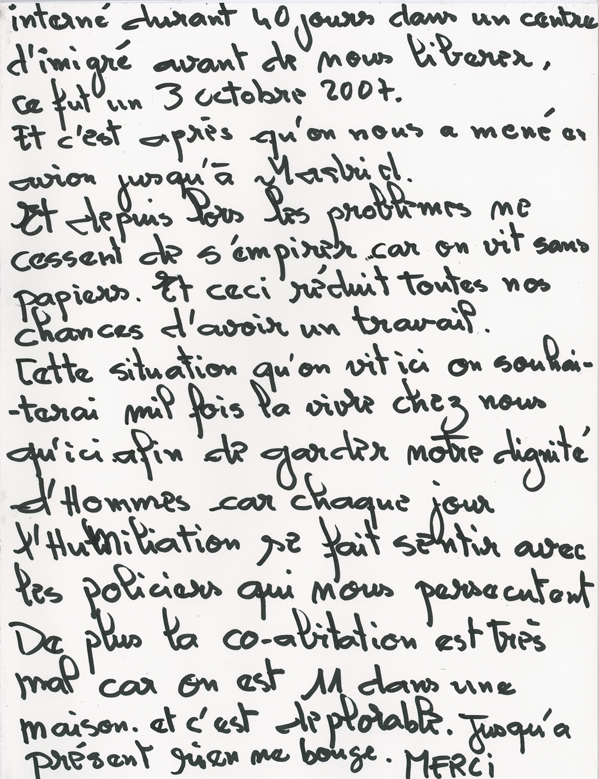 interné durant 40 jours dans un centre
d'imigré avant de nous liberer,
ce fut un 3 octobre 2007.
Et c'est après qu'on nous a mené en
avion jusqu'à Madrid.
Et depuis lors les problèmes ne
cessent de s'émpirer car on vit sans
papiers. Et ceci réduit toutes nos
chances d'avoir un travail.
Cette situation qu'on vit ici on souhai-
-terai mil fois la vivre chez nous
qu'ici afin de garder notre dignité
d'Hommes car chaque jour
l'HuMiliation se fait sentir avec
les policiers qui nous persecutent
De plus la co-abitation est très
mal car on est 11 dans une
maison. et c'est deplorable. Jusqu'a
présent rien ne bouge. MERCi